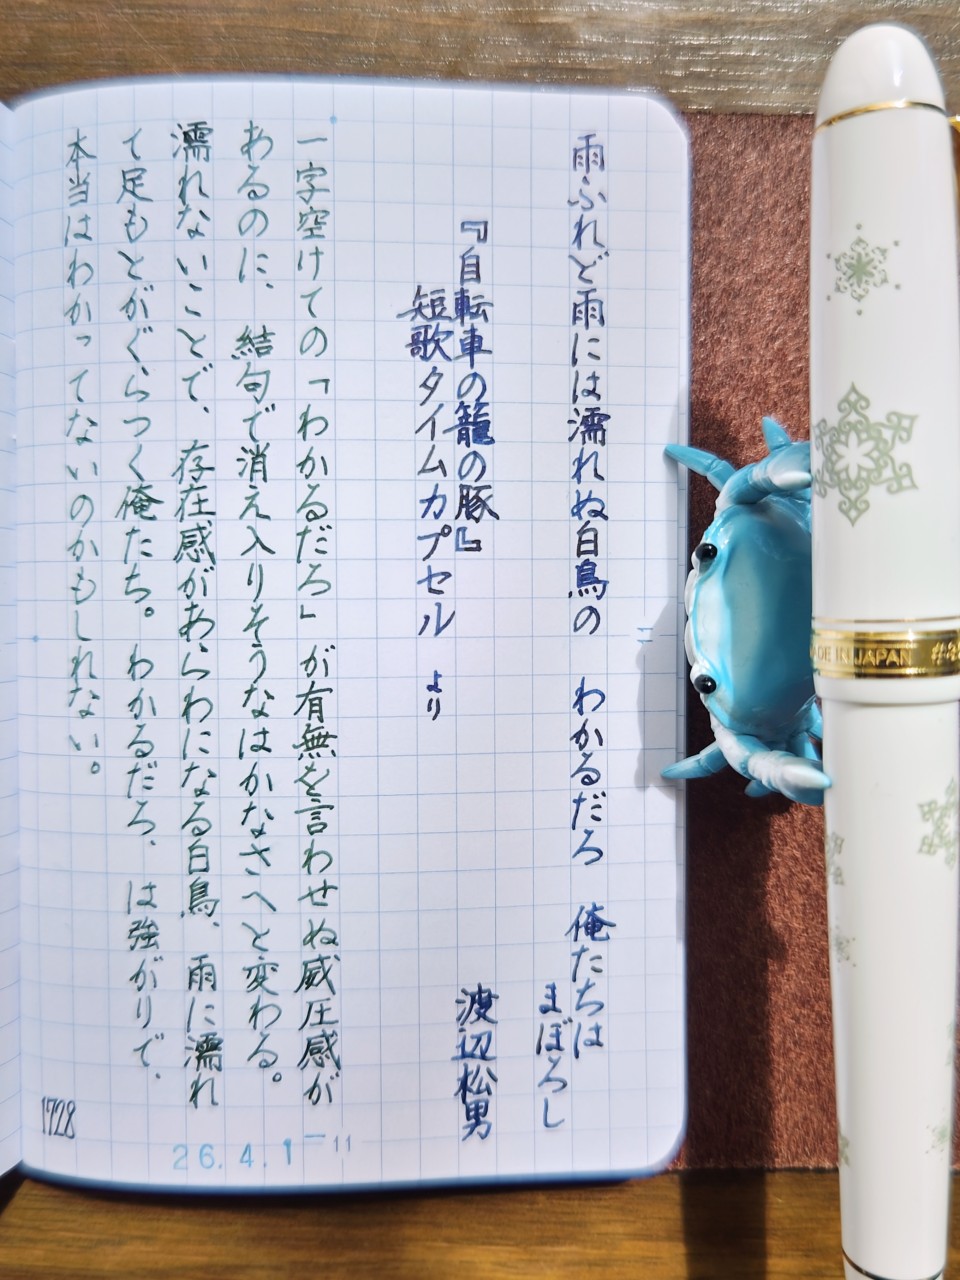 雨ふれど雨には濡れぬ白鳥の　わかるだろ　俺たちは
まぼろし
『自転車の籠の豚』
短歌タイムカプセル　より
渡辺松男
一字空けての「わかるだろ」が有無を言わせぬ威圧感が
あるのに、結句で消え入りそうなはかなさへと変わる。
濡れないことで、存在感があらわになる白鳥、雨に濡れ
て足もとがぐらつく俺たち。わかるだろ、は強がりで、
本当はわかってないのかもしれない。
1728
26.4.1
11
11
MADE IN JAPAN